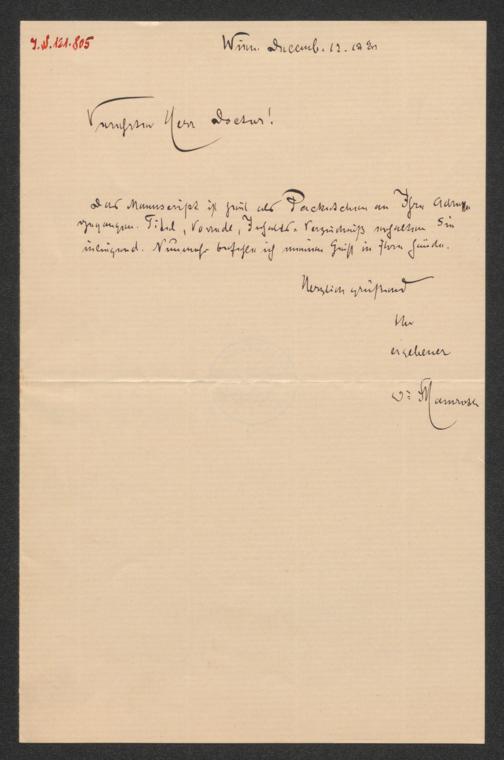 I.N. 121.805
Wien. Decemb. 13.
Verehrter Herr Doctor!
Das Manuscript ist heut als Packetchen an Ihre Adresse
gegangen. Titel, Vorrede, Inhalts-Verzeichniß erhalten Sie
inliegend. Nunmehr befehle ich meinen Geist in Ihre Hände.
Herzlich grüßend
Ihr
ergebener
Dr Mamroth